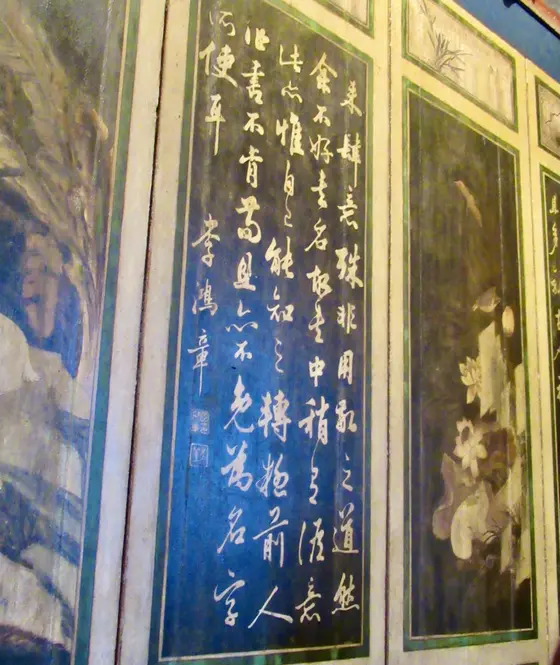 来肆意殊非用敬之道然
余不好書名故書中稍有淡意
此亦惟自己能知之轉前人
作書不肯苟且亦不免為名字
所使耳
李鴻章